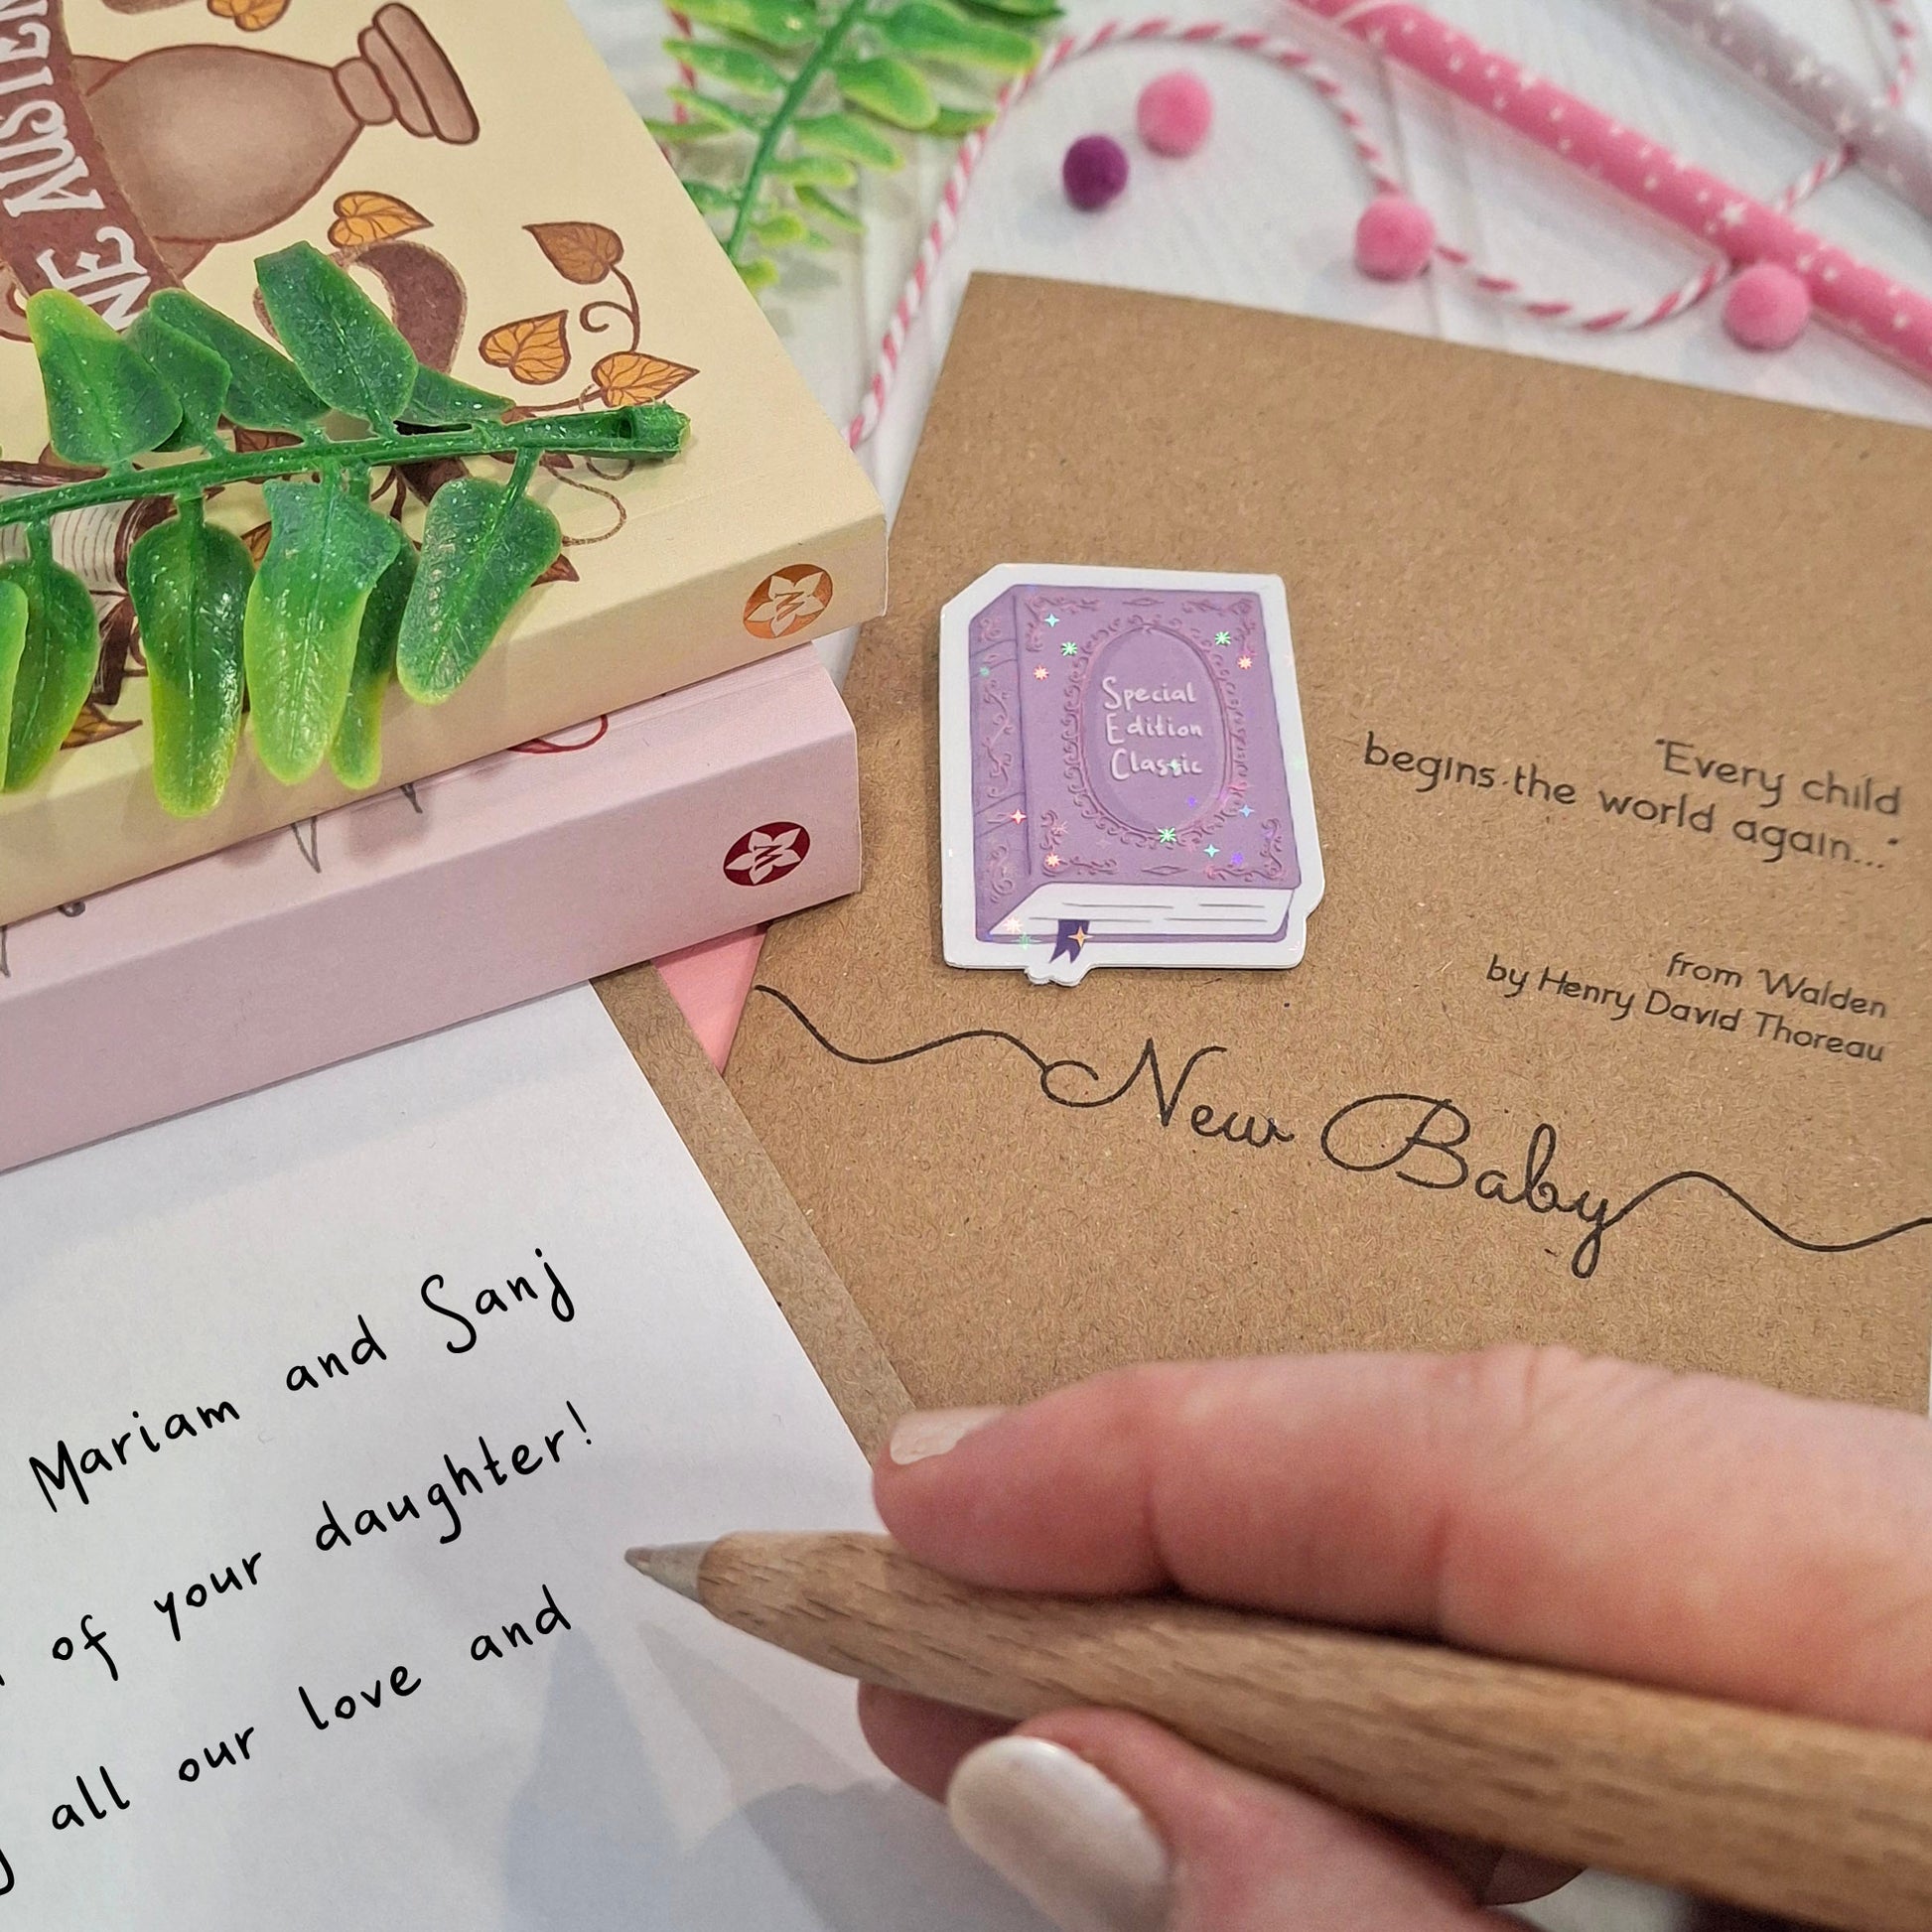 NE AUSTEN
Special
Edition
Classic
"Every child
begins the world again..."
from 'Walden
by Henry David Thoreau
New Baby
Mariam and Sanj
of your daughter!
all our love and